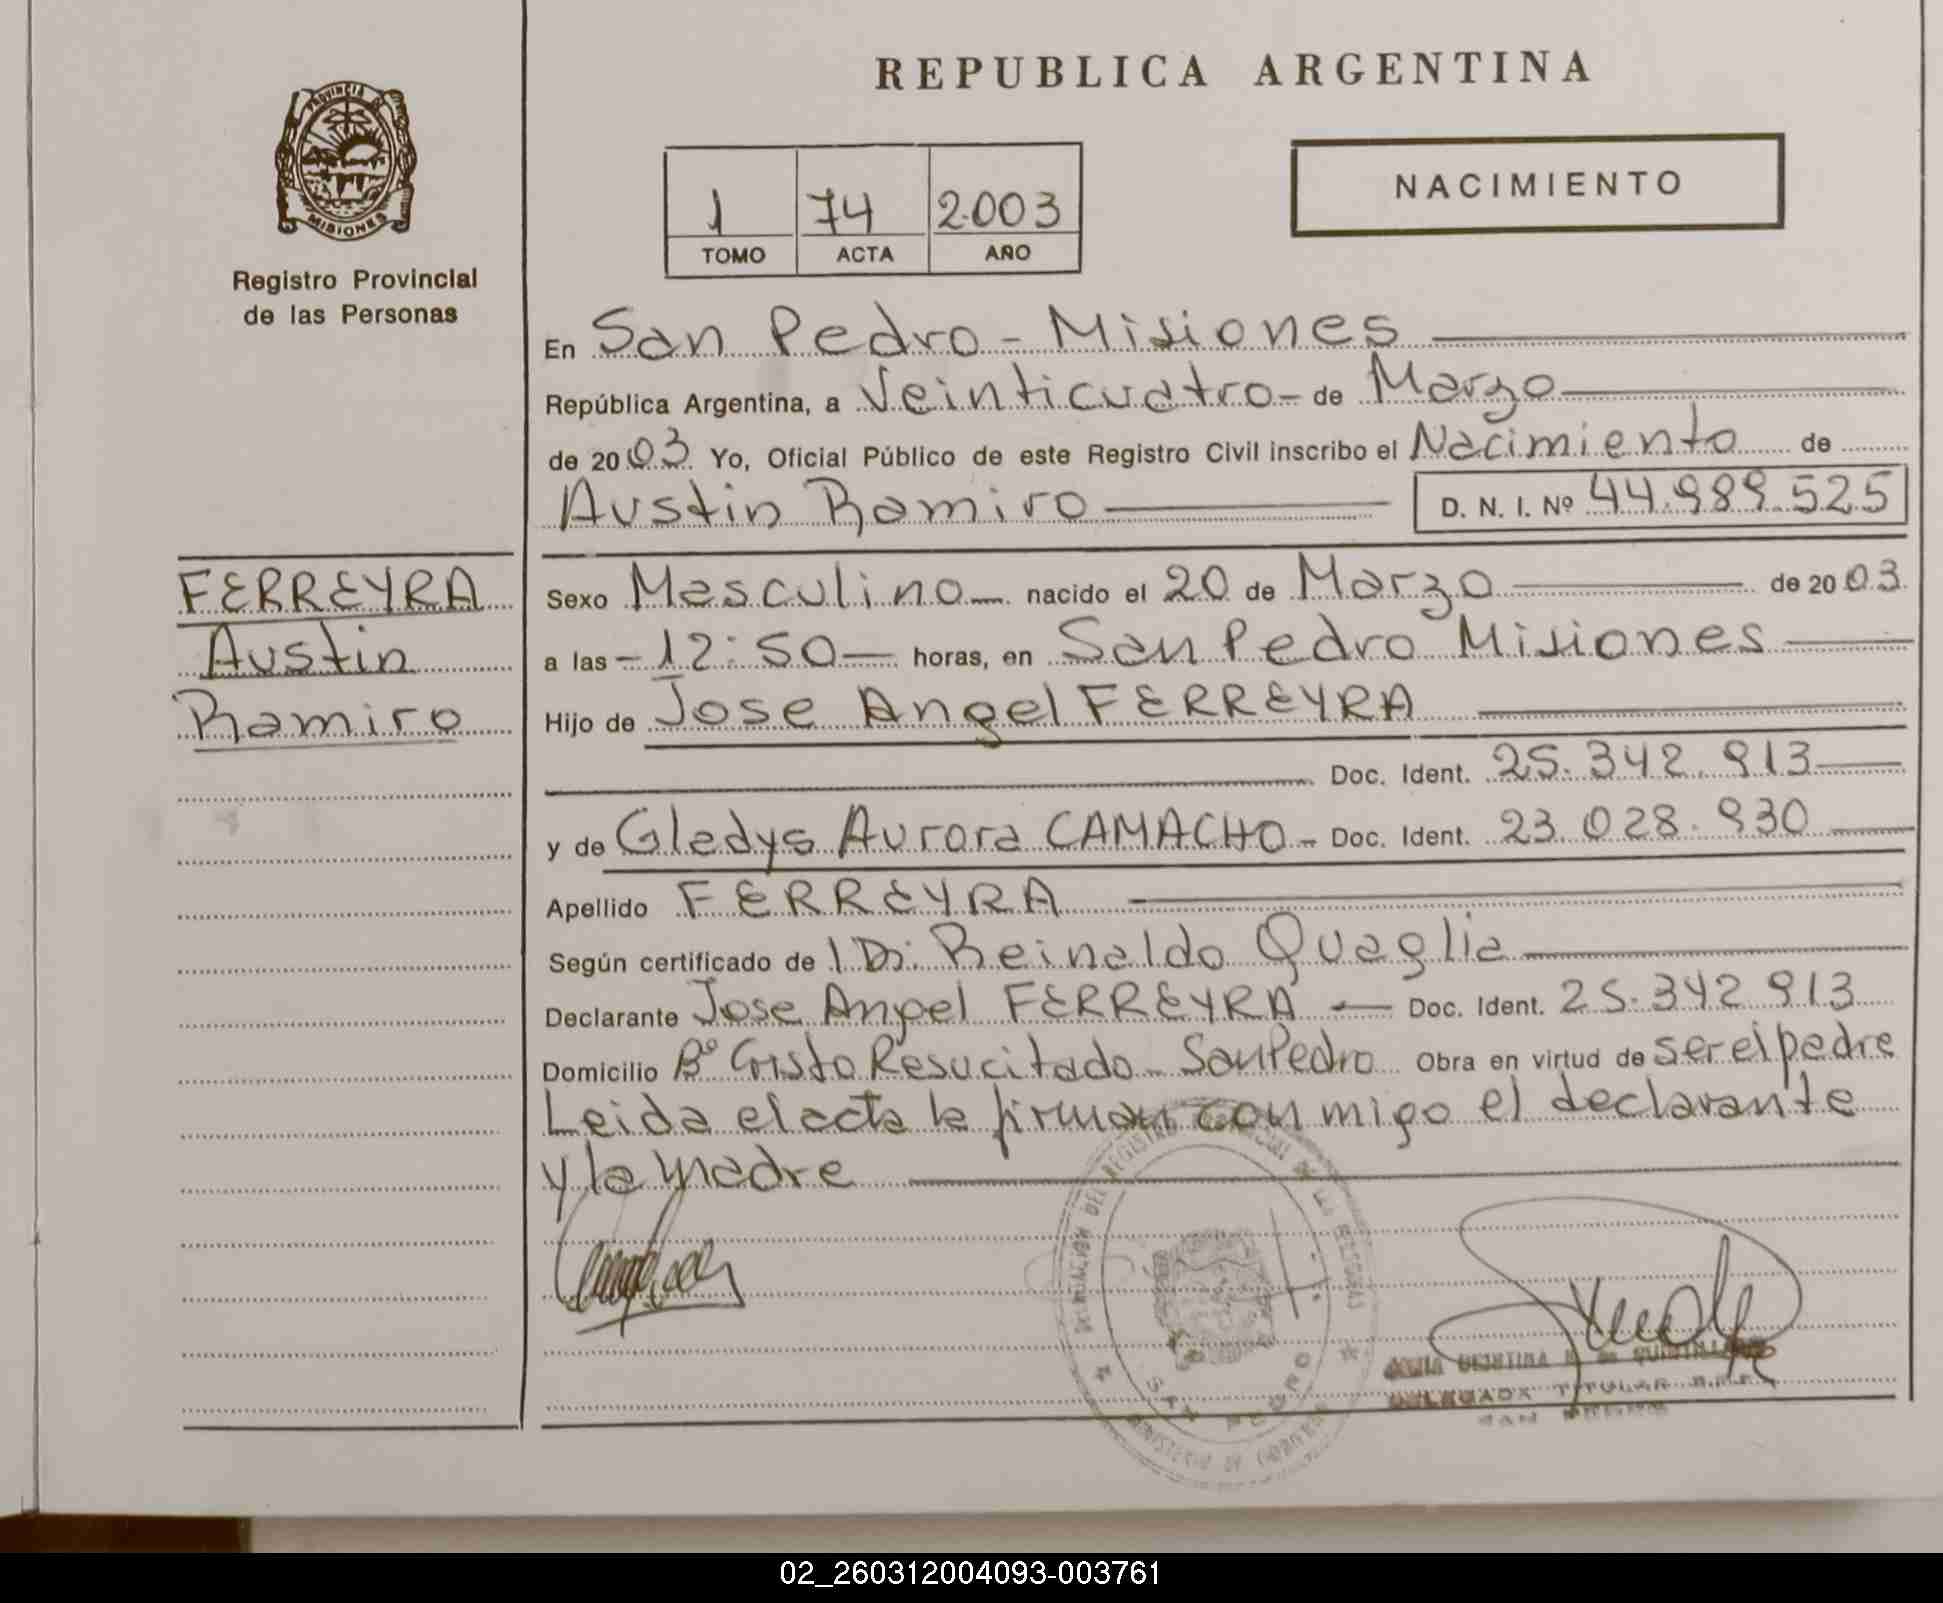 REPUBLICA ARGENTINA
PROVINCIA DE
MISIONES
Registro Provincial
de las Personas
NACIMIENTO
1 74 2.003
TOMO ACTA AÑO
En San Pedro - Misiones
República Argentina, a Veinticuatro - de Marzo
de 2003 Yo, Oficial Público de este Registro Civil inscribo el Nacimiento de
Austin Ramiro D. N. I. Nº 44.989.525
FERREYRA
Austin
Ramiro
Sexo Masculino nacido el 20 de Marzo de 2003
a las - 12:50 - horas, en San Pedro Misiones
Hijo de Jose Angel FERREYRA
Doc. Ident. 25.342.913
y de Gladys Aurora CAMACHO - Doc. Ident. 23.028.930
Apellido FERREYRA
Según certificado de Reinaldo Quaglia
Declarante Jose Angel FERREYRA - Doc. Ident. 25.342 913
Domicilio Bº Cristo Resucitado - San Pedro Obra en virtud de ser el padre
Leida el acta la firman con migo el declarante
y la madre
DELEGADA TITULAR R.P.P.
SAN PEDRO
02_260312004093-003761